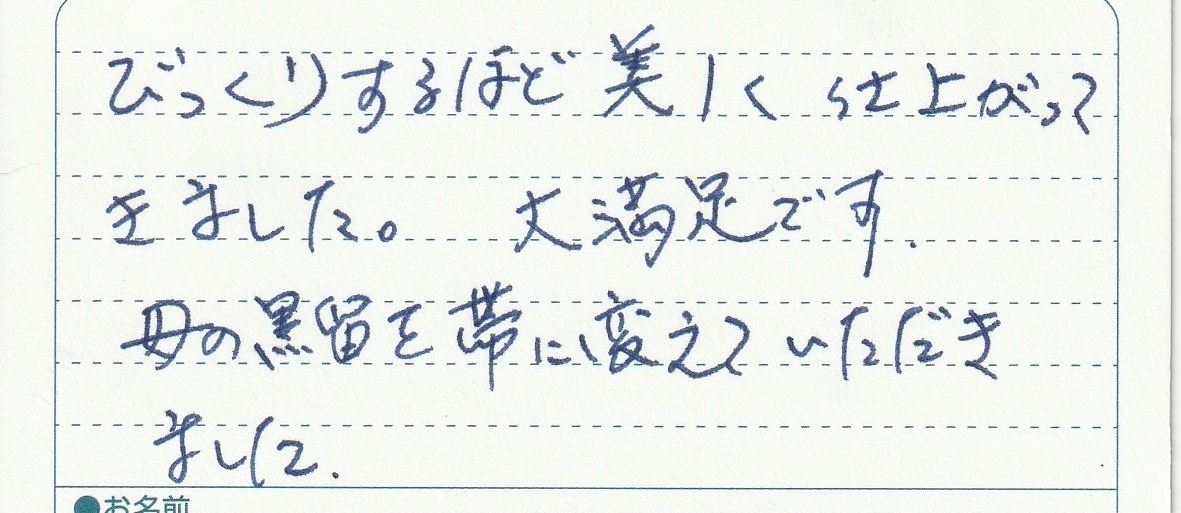 びっくりするほど美しく仕上がって
きました。 大満足です.
母の黒留を帯に変えていただき
ました.
●お名前